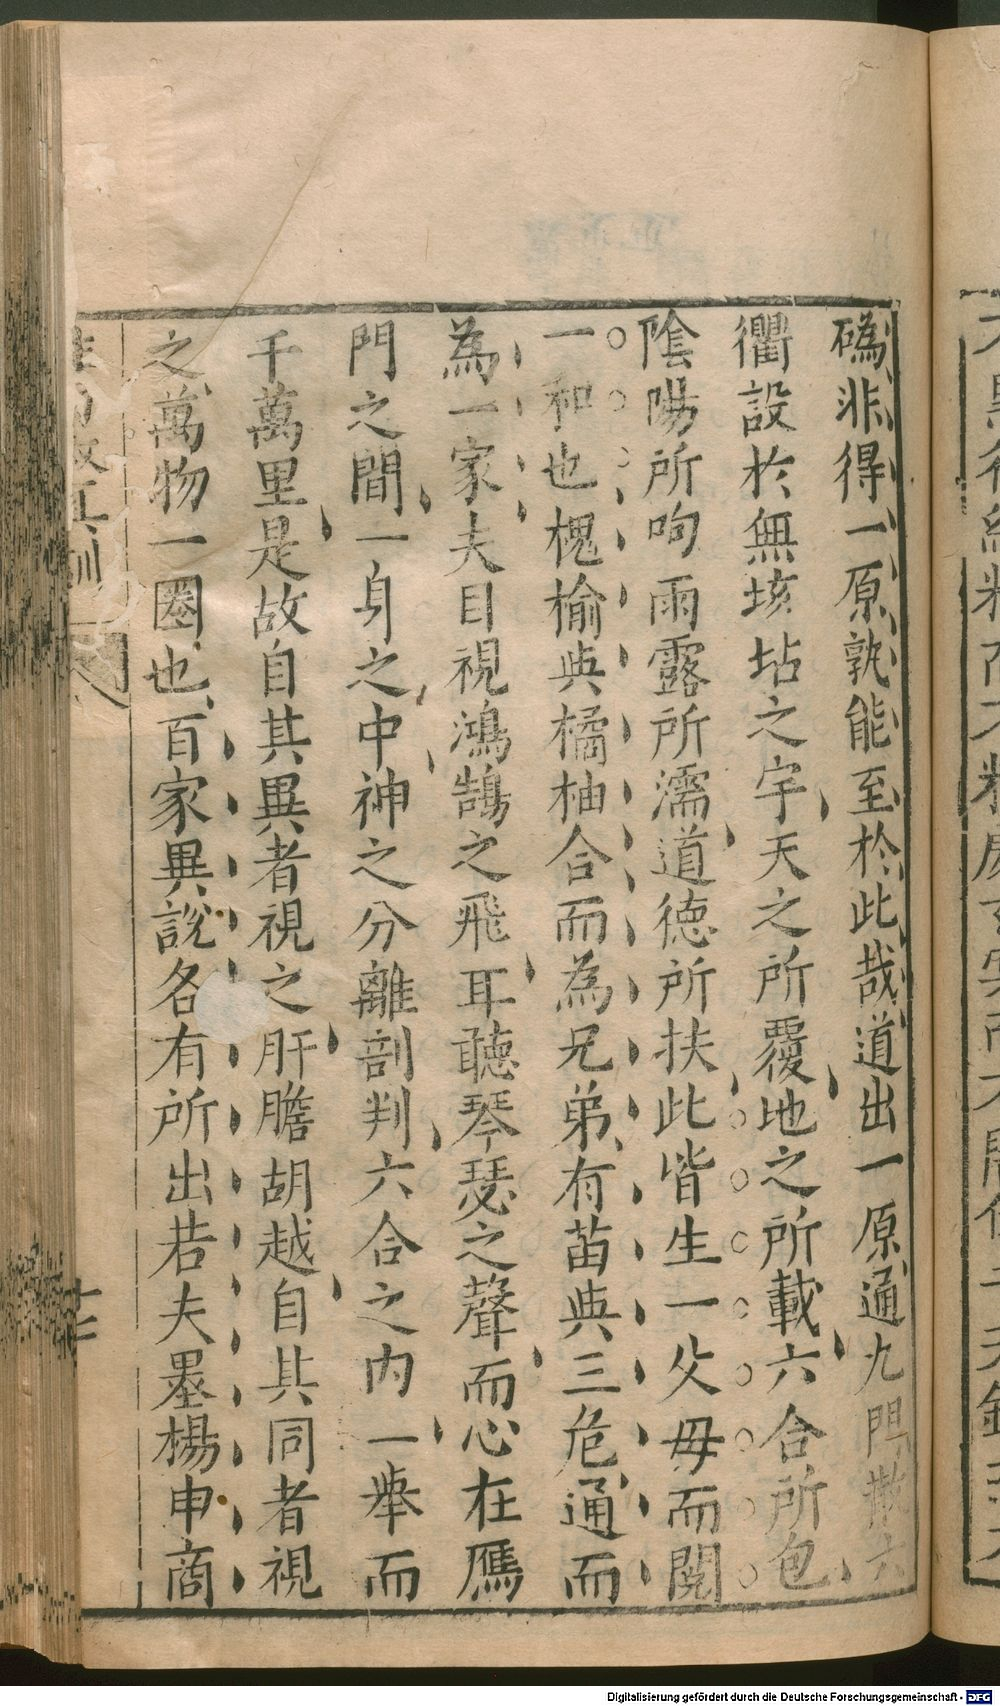 碼非得一原孰能至於此哉道出一原通九門散六
衢設於無垓坫之宇天之所覆地之所載六合所包
陰陽所呴雨露所濡道德所扶此皆生一父母而閱
一和也槐榆與橘柚合而為兄弟有苗與三危通而
為一家夫目視鴻鵠之飛耳聽琴瑟之聲而心在鴈
門之間一身之中神之分離剖判六合之内一舉而
千萬里是故自其異者視之肝膽胡越自其同者視
之萬物一圈也百家異說各有所出若夫墨楊申商
Digitalisierung gefördert durch die Deutsche Forschungsgemeinschaft - DFG